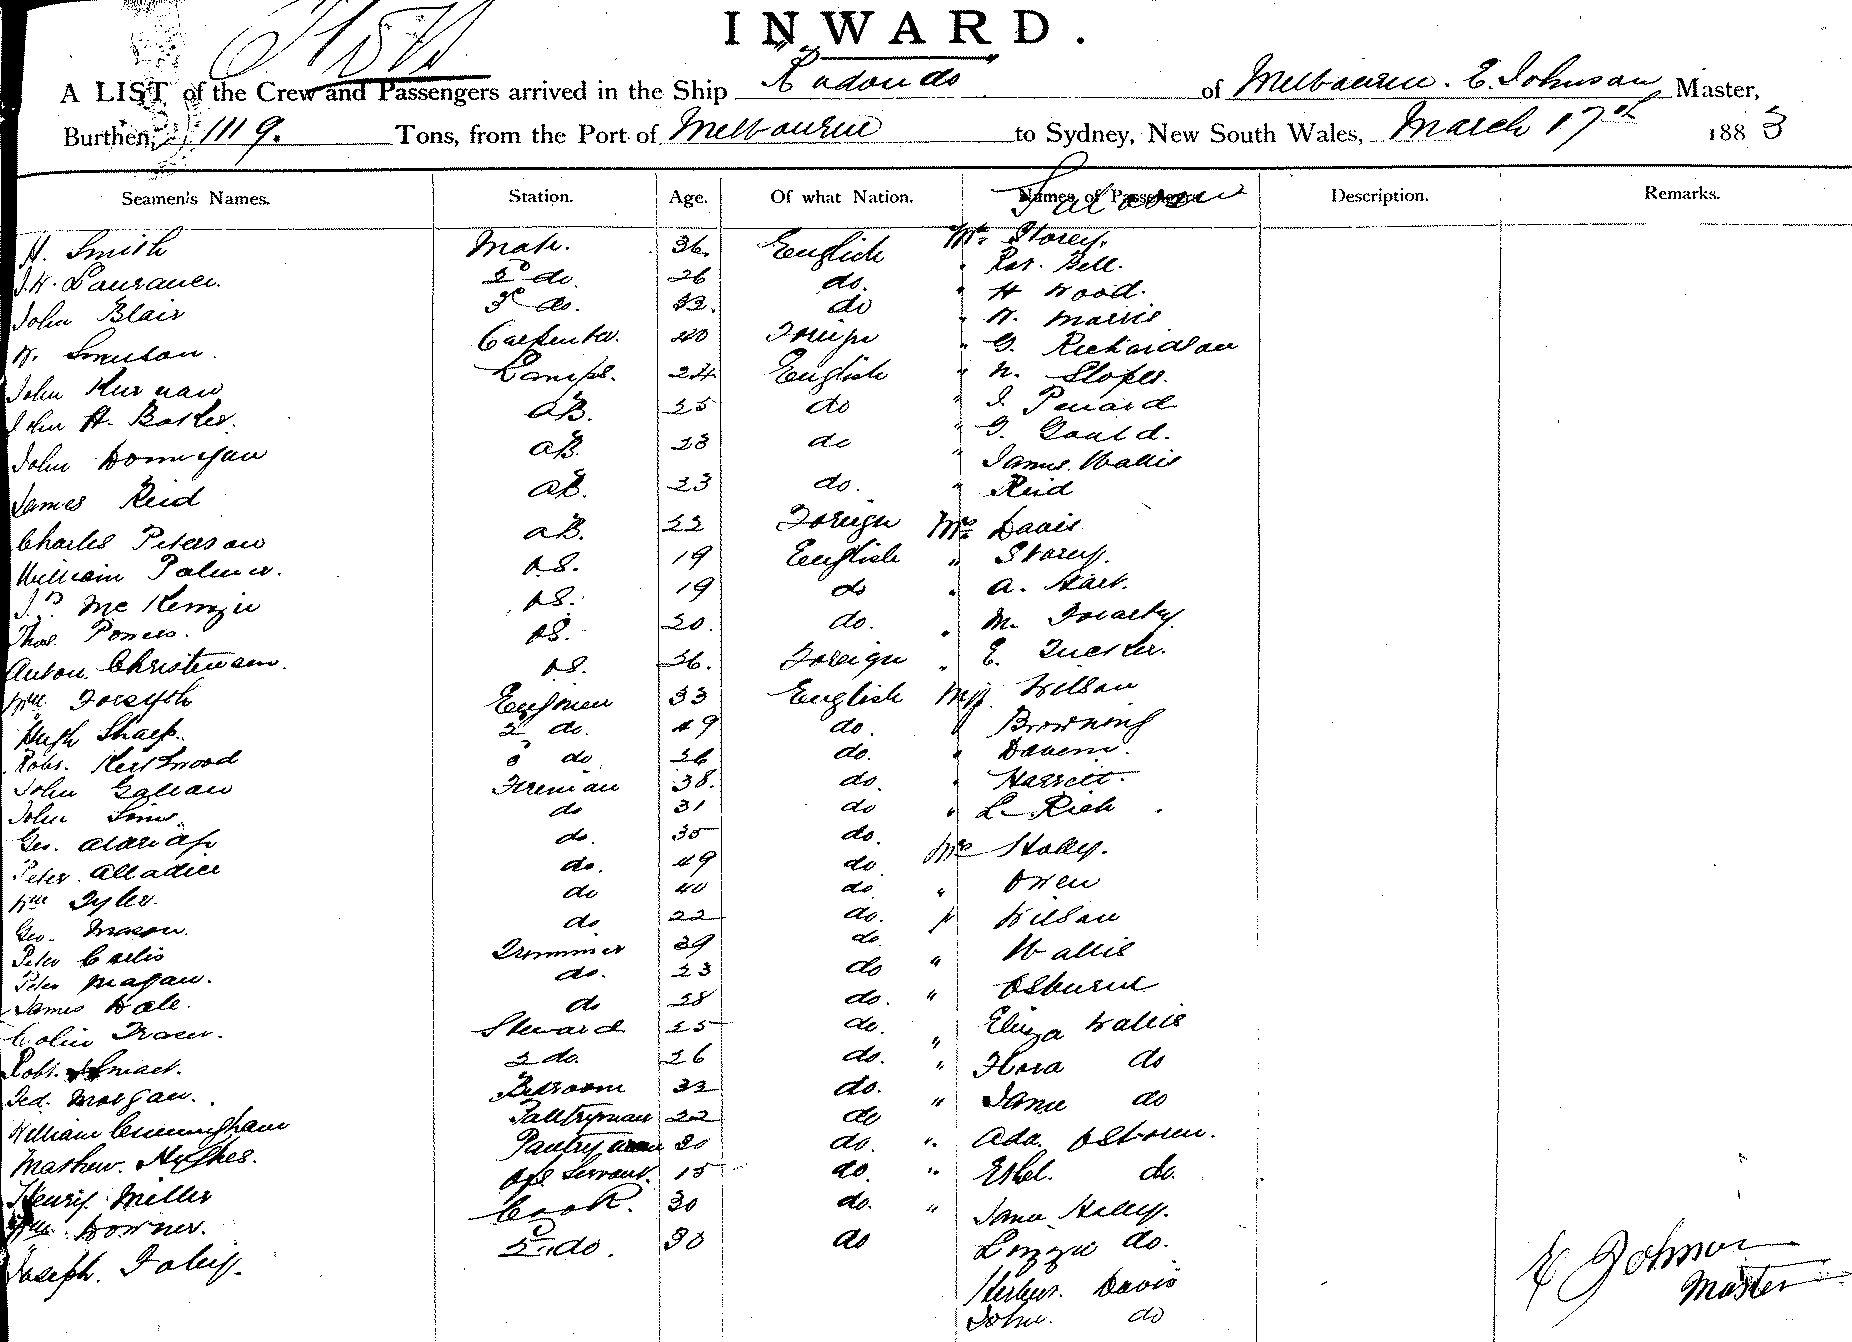 INWARD.
A LIST of the Crew and Passengers arrived in the Ship "Rodondo" of Melbourne. E. Johnson Master,
Burthen, 1119. Tons, from the Port of Melbourne to Sydney, New South Wales, March 17th 1883
Saloon
Seamen's Names. Station. Age. Of what Nation. Names of Passengers Description. Remarks.
H. Smith Mate. 36. English Mr. Storey.
J.W. Laurance. 2d do. 26 do. " Bell.
John Blair 3d do. 32. do " H Wood.
W. Carpenter. 40 Foreign " W. Morris
John Lamps. 24 English " G. Richardson
John H. Barker. AB. 25 do " N. Slopes.
John Donnegan AB. 23 do " J.
James Reid AB. 23 do. " G. Gould.
Charles Peterson AB. 22 Foreign " James Wallis
William Palmer. OS. 19 English " Reid
Jas McKenzie OS. 19 do Mrs Davis
Thos. Powers. OS. 20. do. " Storey.
Anton Christensen. OS. 26. Foreign " A. Hart.
Wm Forsyth Engineer 33 English " M.
Hugh Sharp. 2 do. 49 do. " E. Tucker.
Robt. Kirkwood 3 do 26 do. Miss Wilson
John Fireman 38. do. " Browning
John Sims. do 31 do "
Geo. do. 35 do. " Harriett.
Peter do. 49 do " L. Rich
Wm Tyler. do 40 do. Mrs Holley.
Geo. Mason. do 22 do. " Owen
Peter Trimmer 39 do. " Wilson
Peter Magan. do. 23 do " Wallis
James Hall. do 28 do. " Osburne
Colin Fraser. Steward 25 do. " Eliza Wallis
Robt. Smart. 2 do. 26 do. " Flora do
Fred. Morgan. Bedroom 32 do. " Jane do
William Cunningham Pantryman 22 do " Ada. Osborn.
Mathew. Hughes. Pantryman 30 do. " Ethel. do.
Henry Miller Servant. 15 do. " Jane Holley.
Wm. Downer. Cook. 30 do. Lizzie do.
Joseph. Foley. 2d do. 30 do Davis
John. do
E Johnson
Master